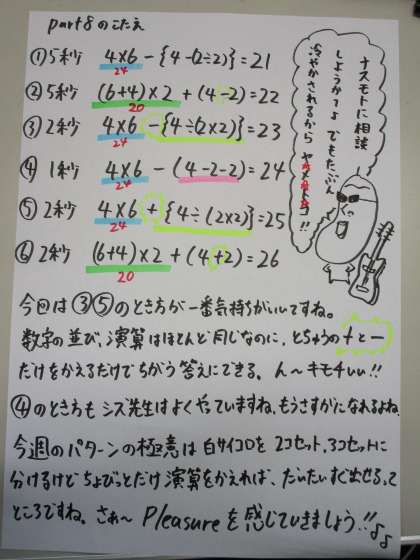 part8のこたえ
①5秒 4×6-{4-(2÷2)}=21
24
②5秒 (6+4)×2+(4-2)=22
20
③2秒 4×6-{4÷(2×2)}=23
24
④1秒 4×6-(4-2-2)=24
24
⑤2秒 4×6+{4÷(2×2)}=25
24
⑥2秒 (6+4)×2+(4+2)=26
20
ナスモトに相談
しようかってよ でもたぶん
冷やかされるから ヤメトコ!!
今回は③⑤のとき方が一番気持ちがいいですね。
数字の並び、演算はほとんど同じなのに、とちゅうの+と-
だけをかえるだけでちがう答えにできる。ん〜キモチいい!!
④のとき方もシズ先生はよくやっていますね。もうさすがになれるよね。
今週のパターンの極意は白サイコロを2コセット、3コセットに
分けるけどちょびっとだけ演算をかえれば、だいたいすぐ出せるって
ところですね。さぁ〜 Pleasureを感じていきましょう!!♪♪